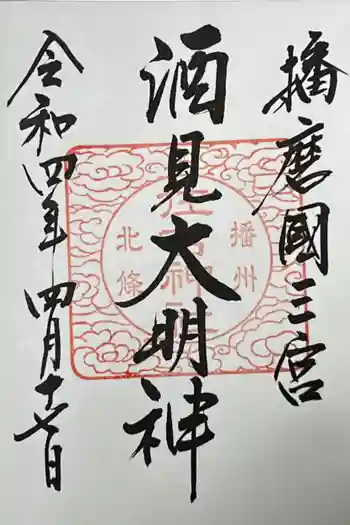 播磨國三宮
酒見大明神
令和四年 四月十七日
播州
住吉神社
北條